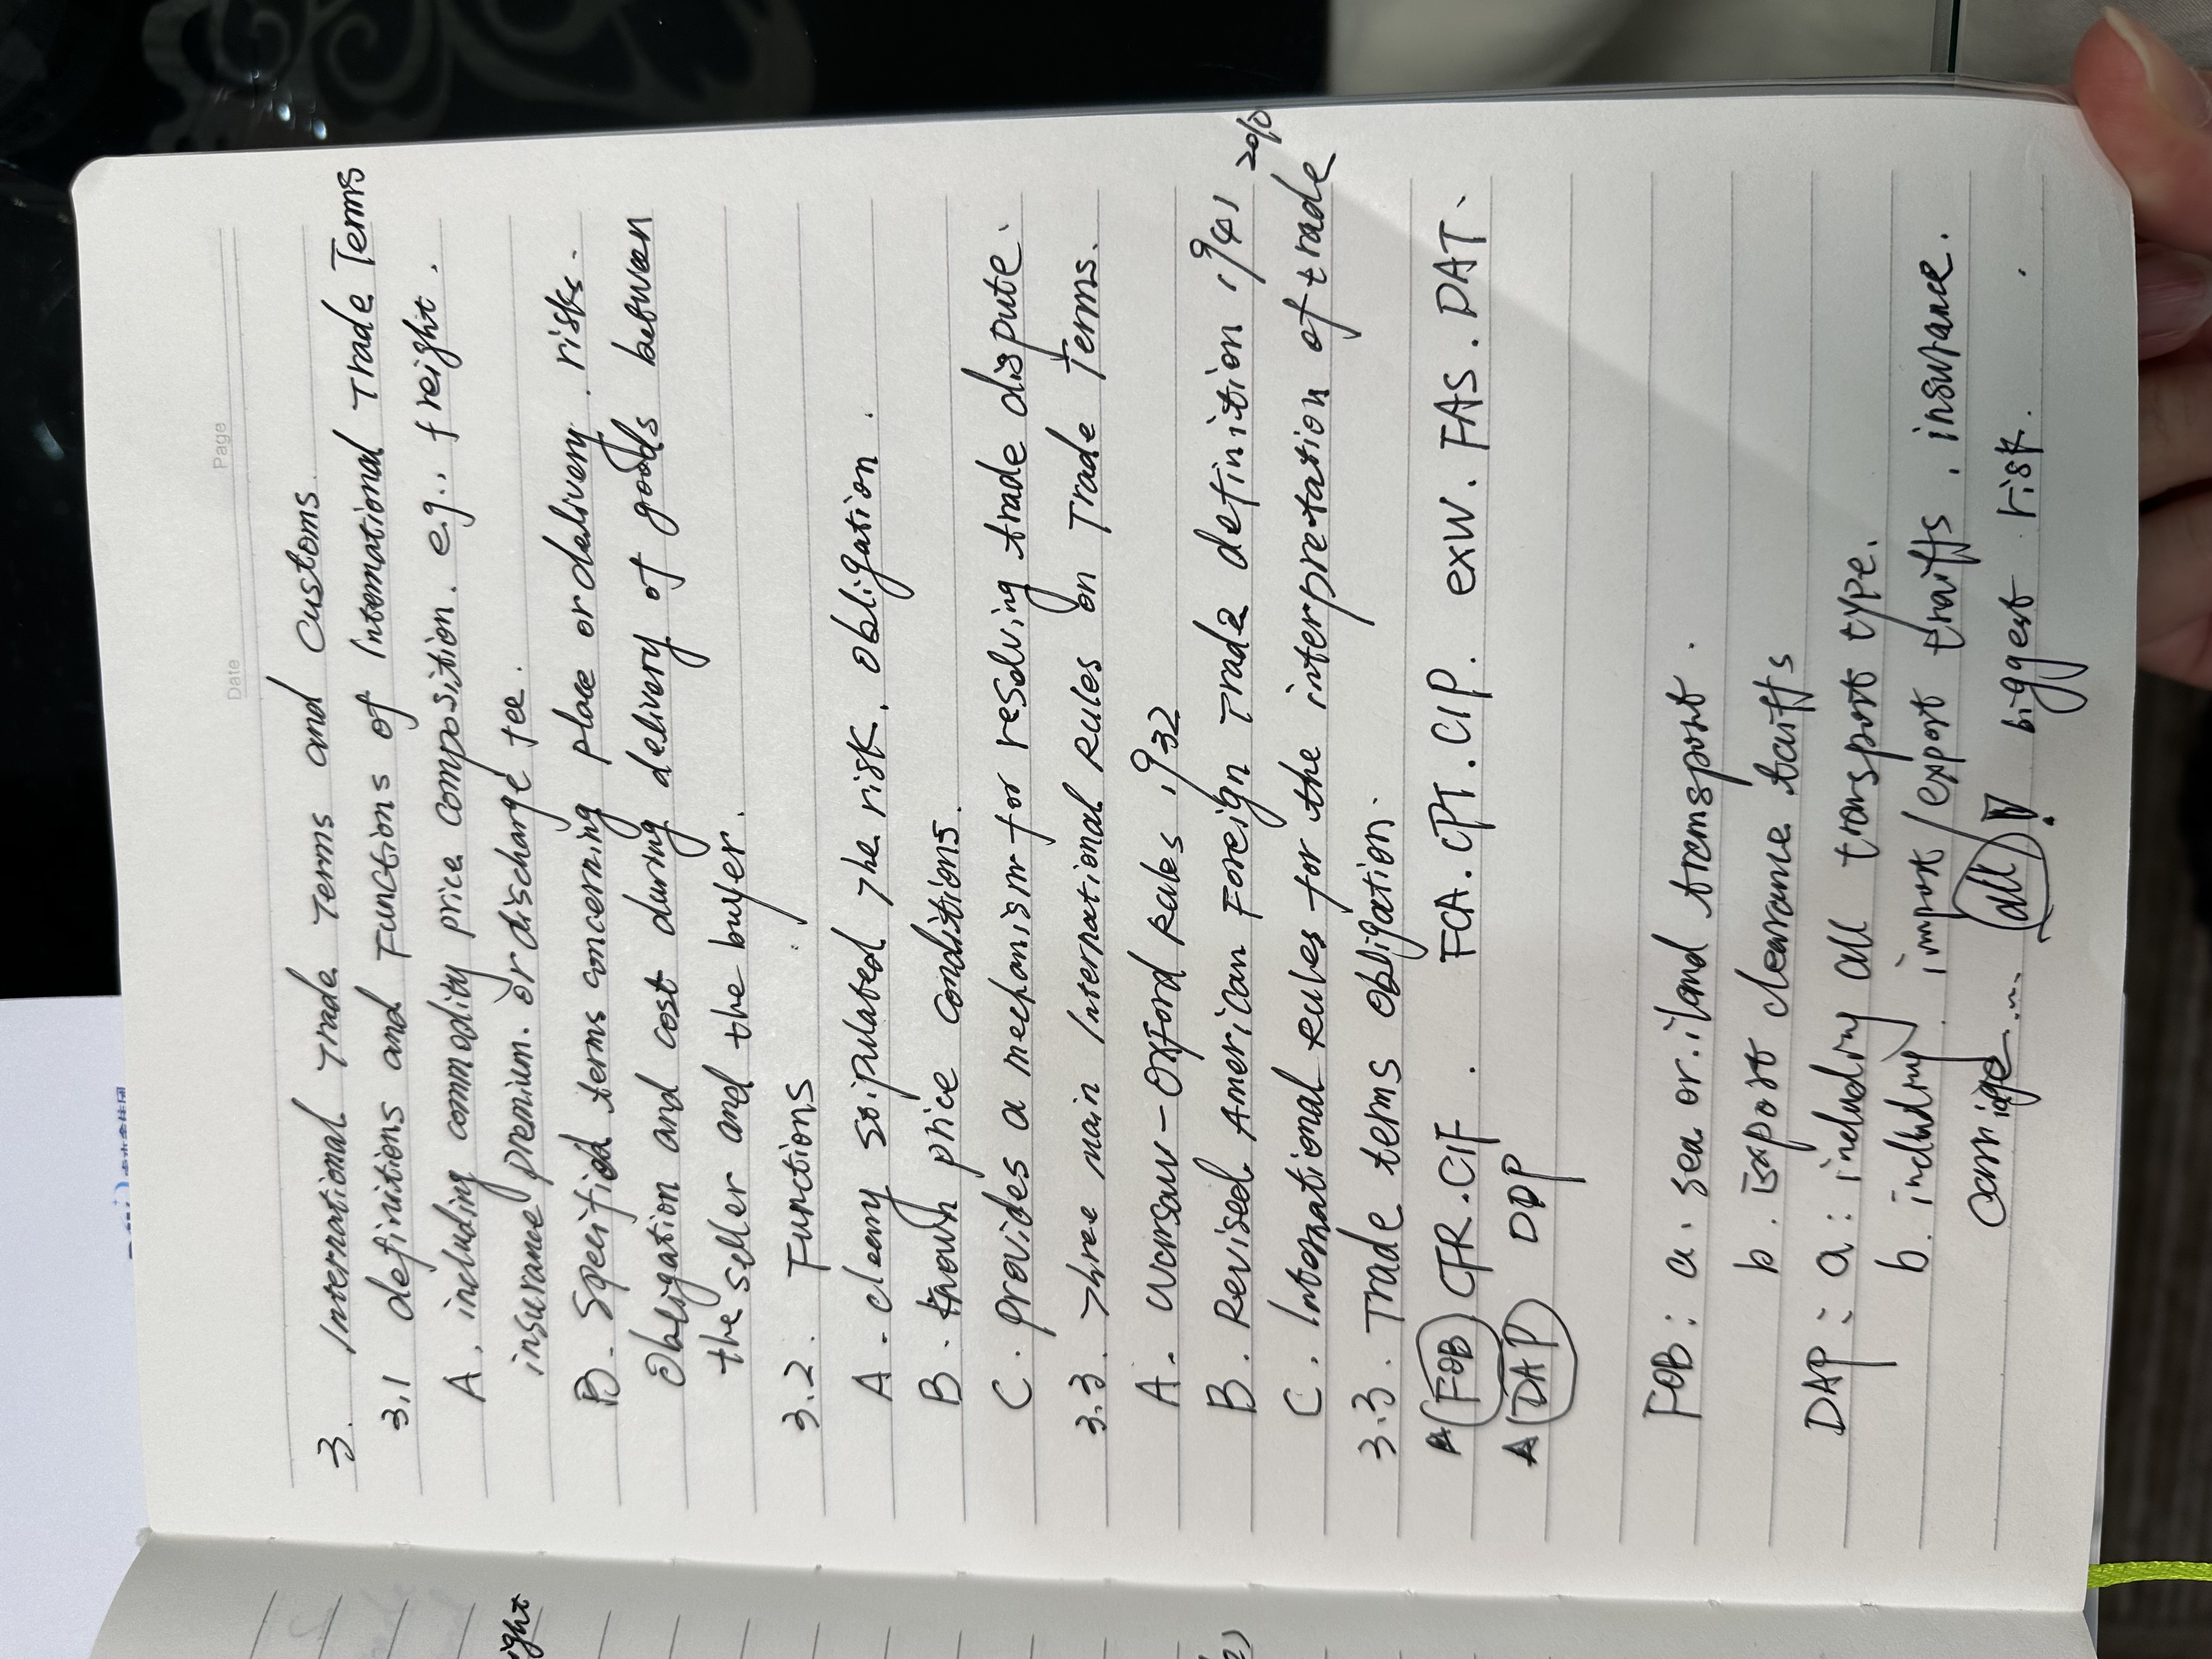 Date Page
3. International Trade Terms and Customs.
3.1 definitions and Functions of International Trade Terms
A. including commodity price composition. e.g., freight.
insurance premium. or discharge fee.
B. Specified terms concerning place or delivery. risks.
Obligation and cost during delivery of goods between
the seller and the buyer.
3.2. Functions
A. The risk. obligation.
B. known price conditions.
C. provides a mechanism for resolving trade dispute.
3.3. Three main International Rules on Trade Terms.
A. Warsaw-Oxford Rules, 1932
B. Revised American Foreign Trade definition, 1941
C. International Rules for the interpretation of trade 2010
3.3. Trade terms obligation.
FOB CFR. CIF. FCA. CPT. CIP. exw. FAS. DAT.
DAP DDP
FOB: a. sea or transport.
b. export clearance
DAP: a: including all transport type.
b. including import/export traiffs. insurance.
all! biggest risk.
right